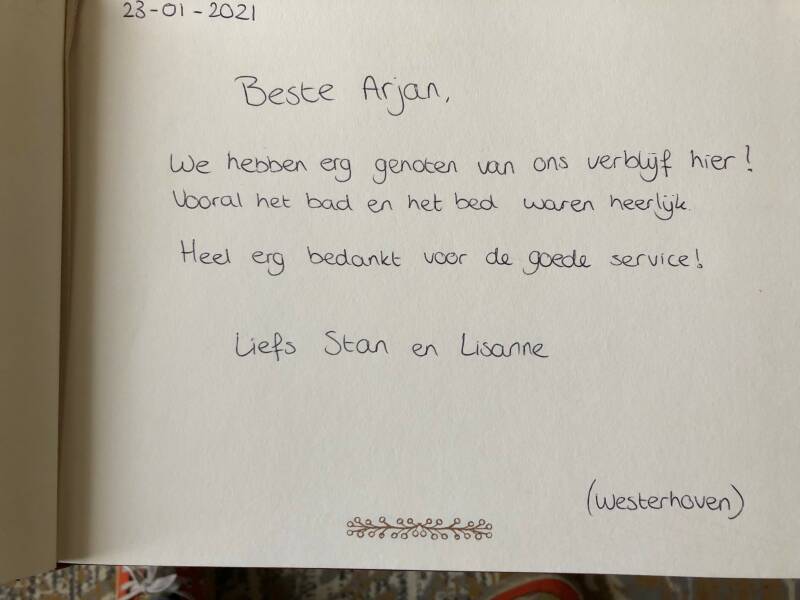 23-01-2021
Beste Arjan,
We hebben erg genoten van ons verblijf hier!
Vooral het bad en het bed waren heerlijk.
Heel erg bedankt voor de goede service!
Liefs Stan en Lisanne
(Westerhoven)